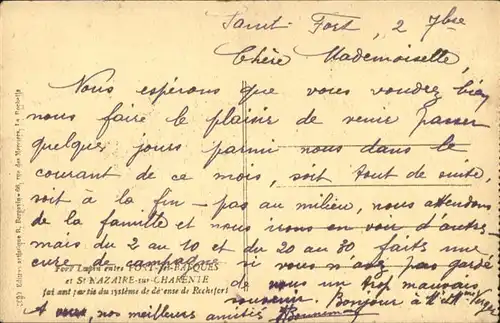 Saint-Fort, 2 7bre
Chère Mademoiselle,
Nous espérons que vous voudrez bien
nous faire le plaisir de venir passer
quelques jours parmi nous dans le
courant de ce mois, soit tout de suite,
soit à la fin - pas au milieu, nous attendons
de la famille et nous irons en voir d'autres
mais du 2 au 10 et du 20 au 30 faits une
cure de campagne si vous n'avez pas gardé
de nous un trop mauvais
souvenir. Bonjour à
A vous, nos meilleurs amitiés
Fort Lupin entre PORT-des-BARQUES
et St NAZAIRE-sur-CHARENTE
fai ant partie du système de défense de Rochefort
Edition artistique R. Bergevin, rue des Merciers, La Rochelle